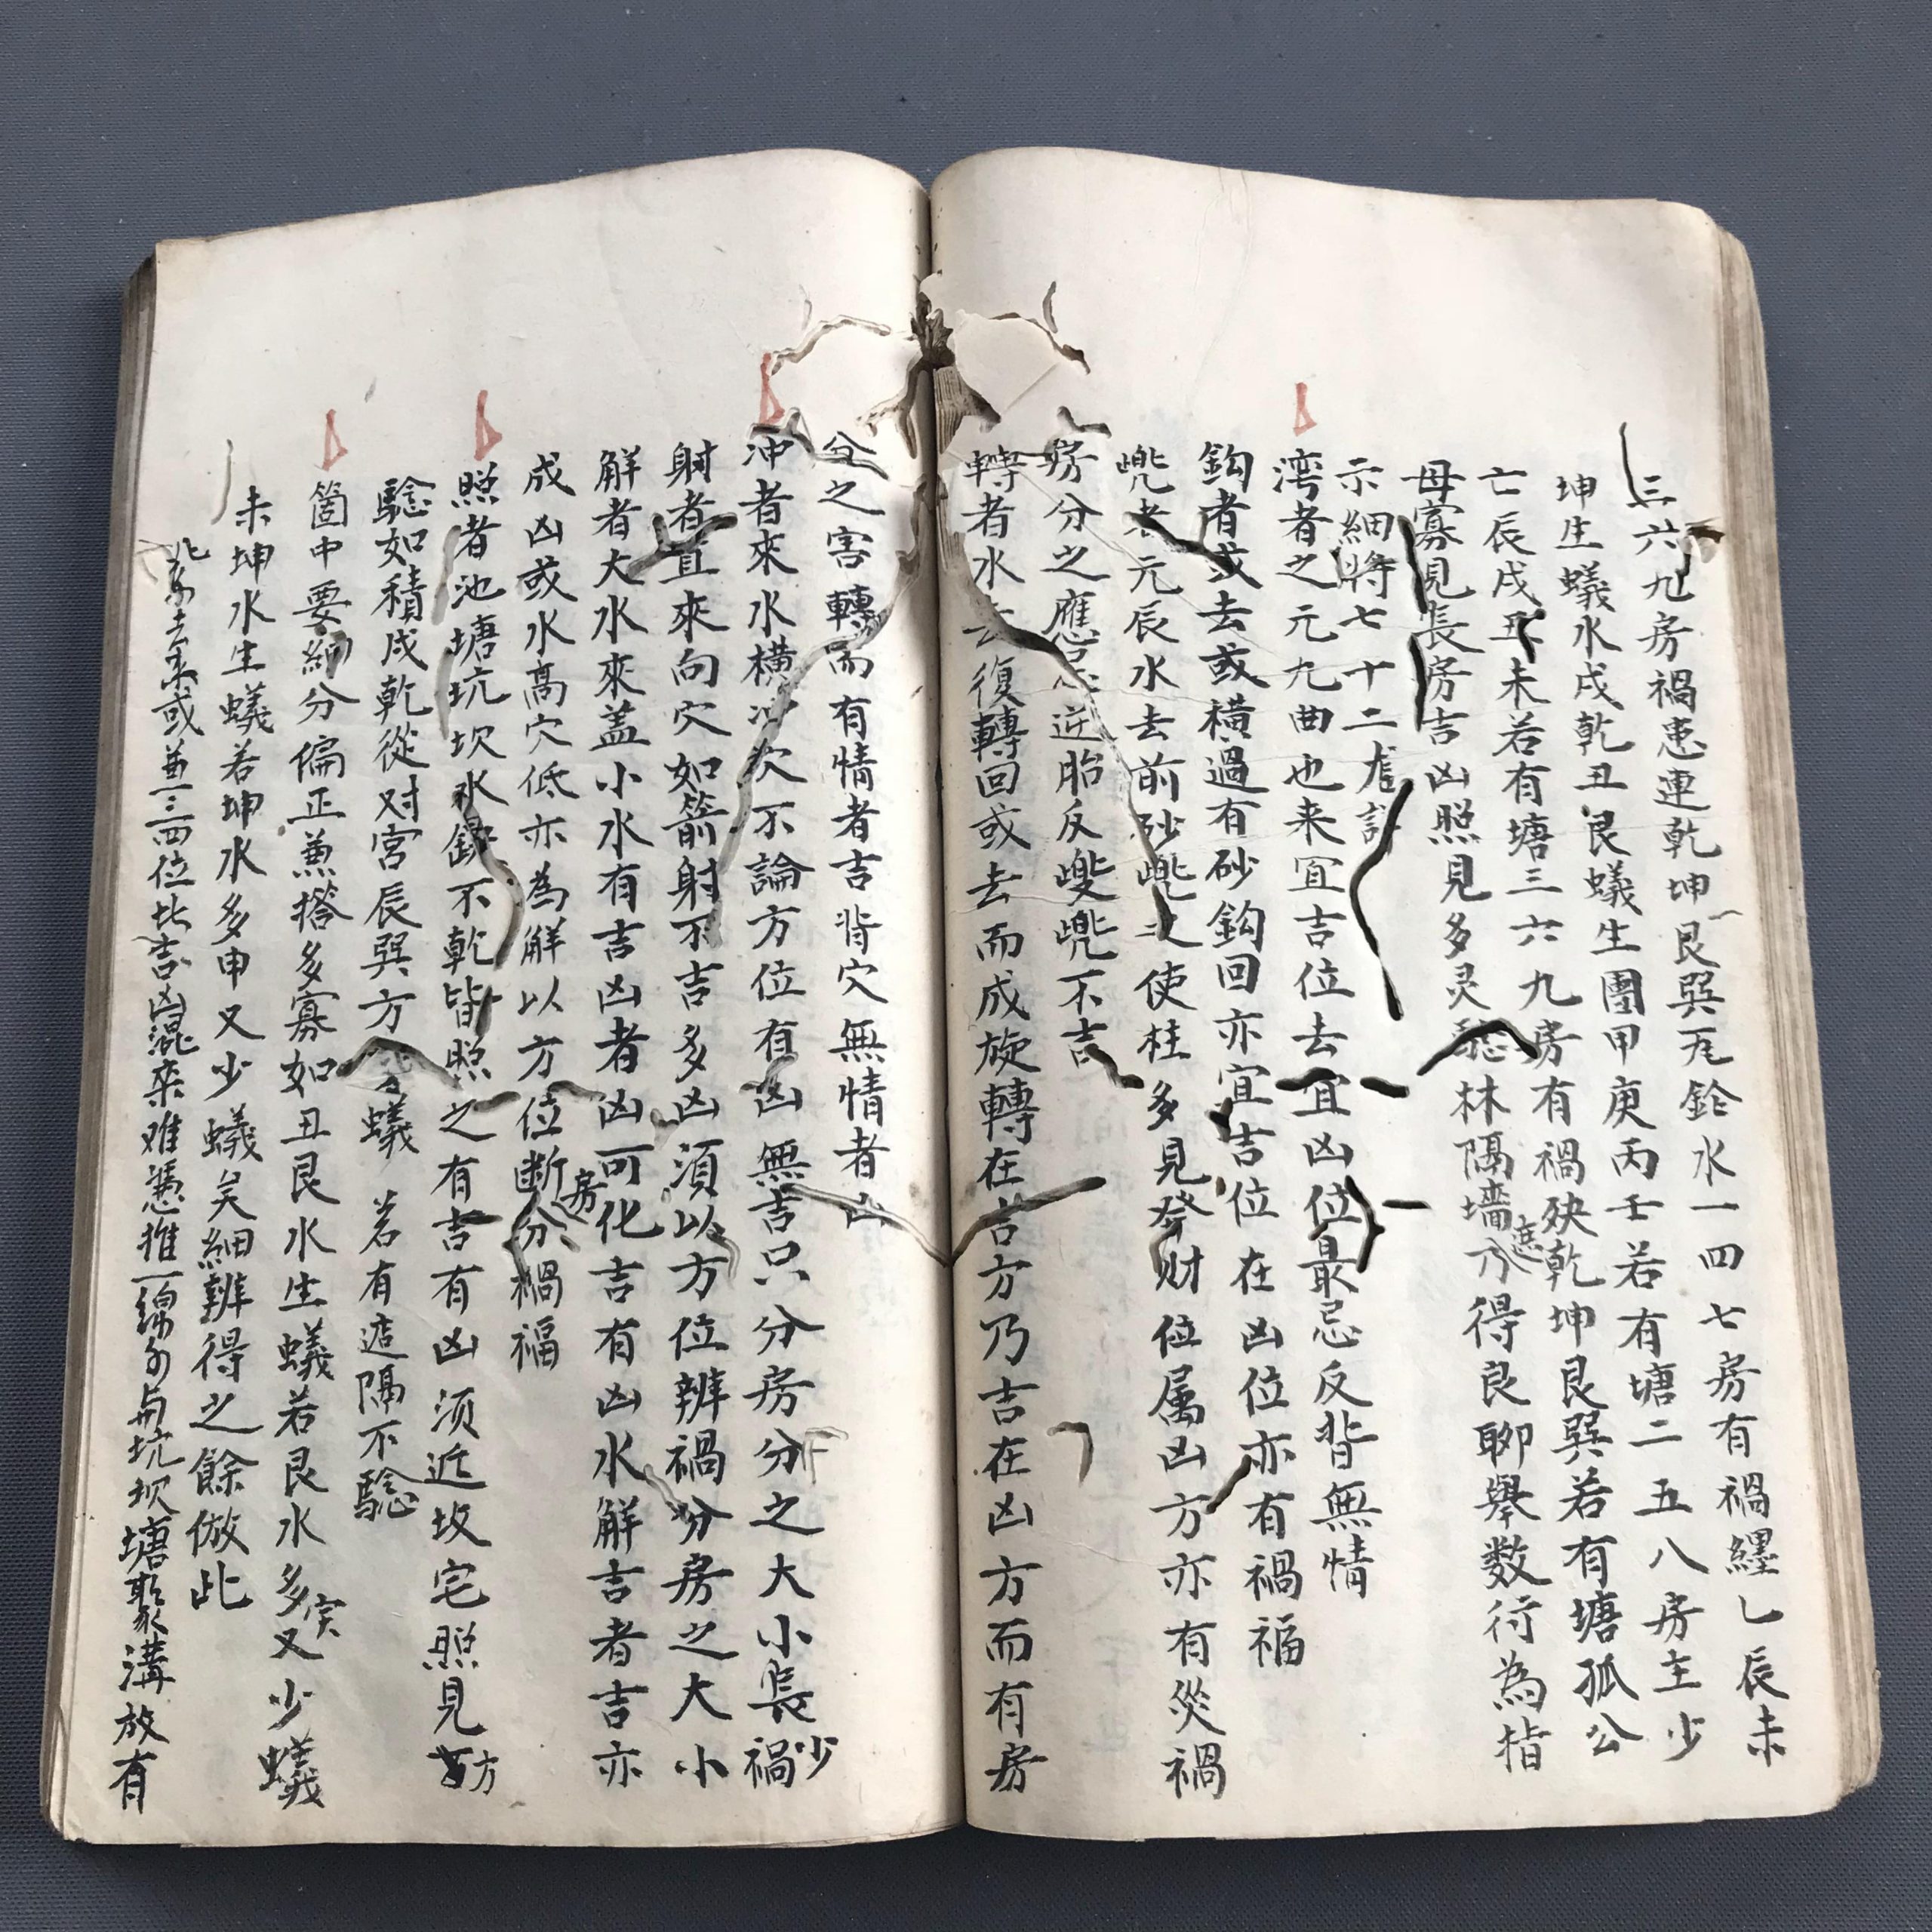 三六九房禍患連乾坤艮巽水一四七房有禍纏乙辰未
坤生蟻水戌乾丑艮蟻生團甲庚丙壬若有塘二五八房主少
亡辰戌丑未若有塘三六九房有禍殃乾坤艮巽若有塘孤公
母寡見長房吉凶照見多灵林隔墻遮乃得良聊舉数行為指
示細將七十二
湾者之元九曲也来宜吉位去宜凶位最忌反背無情
鈎者或去或横過有砂鈎回亦宜吉位在凶位亦有禍福
兠者元辰水去前砂兠之使柱多見發财位属凶方亦有災禍
轉者水去復轉回或去而成旋轉在吉方乃吉在凶方而有房
房分之應忌近胎反兠不吉
分之害轉而有情者吉背穴無情者凶
冲者來水横冲穴不論方位有凶無吉只分房分之大小長少禍
射者直來向穴如箭射不吉多凶須以方位辨禍分房之大小
解者大水來盖小水有吉凶者凶可化吉有凶水解吉者吉亦
成凶或水高穴低亦為解以方位断房分禍福
照者池塘坑坎水錄不乾皆照之有吉有凶须近坟宅照見方
騐如積戌乾從对宮辰巽方蟻若有遮隔不騐
箇中要細分偏正兼搭多寡如丑艮水生蟻若艮水多寅又少蟻
未坤水生蟻若坤水多申又少蟻矣細辨得之餘倣此
去来或兼三四位此吉凶混来难憑推与坑坎塘聚溝放有